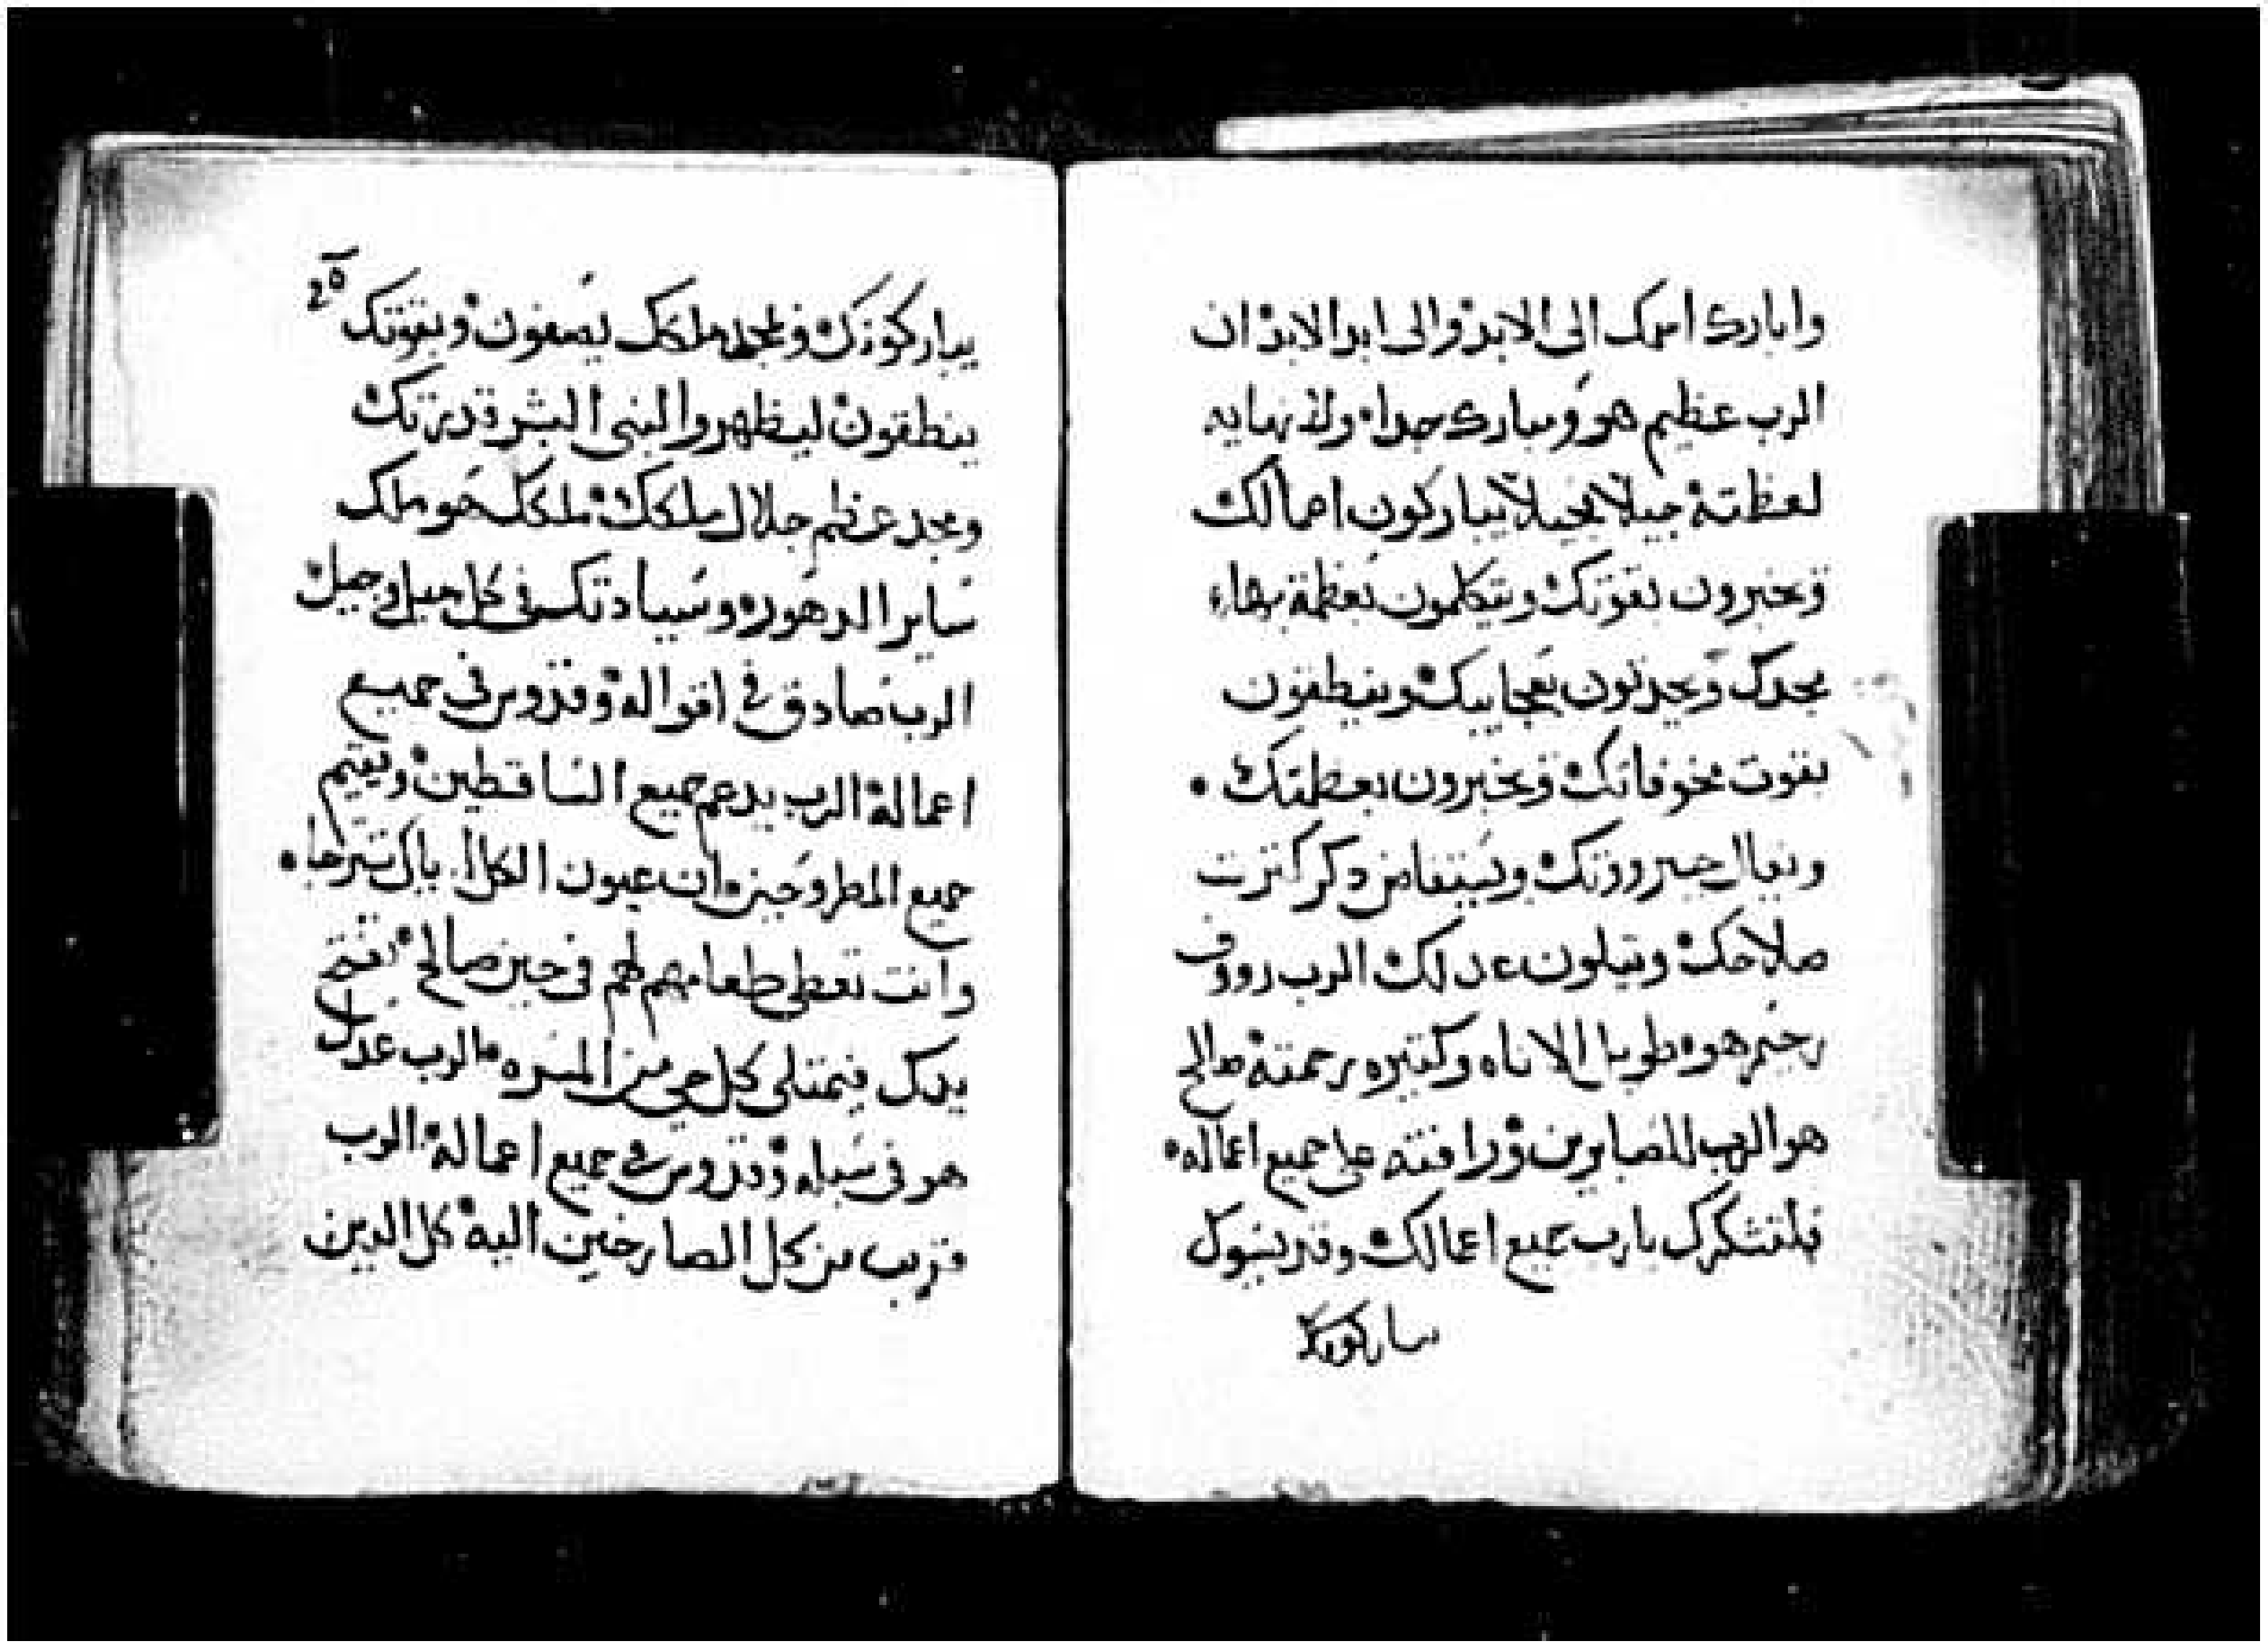 وابارك اسمك الى الابد والى ابد الابد ان
الرب عظيم هو ومبارك جدا ولا نهايه
لعظمته جيلا فجيلا يباركون اعمالك
ويخبرون بقوتك ويتكلمون بعظمة بهاء
مجدك ويحدثون بعجايبك وينطقون
بقوت مخوفاتك ويخبرون بعظمتك
جبروتك ذكر كثرت
صلاحك عدلك الرب رووف
رحيم هو طويل الاناه وكتيره رحمته صالح
هو الرب للصابرين ورافته على جميع اعماله
فلتشكرك يارب جميع اعمالك وقديسوك
يباركونك
٢٥
يباركونك وبمجد ملكك يصفون وبقوتك
ينطقون ليظهروا لبني البشر قدرتك
ومجد عظم جلال ملكك ملكك هو ملك
ساير الدهور وسيادتك في كل جيل وجيل
الرب صادق في اقواله وقدوس في جميع
اعماله الرب يدعم جميع الساقطين ويقيم
جميع المطروحين ان عيون الكل اياك تترجا
وانت تعطي طعامهم لهم في حين صالح تفتح
يدك فيمتلي كل حي من المسره الرب عدل
هو في سبله وقدوس في جميع اعماله الرب
قريب من كل الصارخين اليه كل الدين